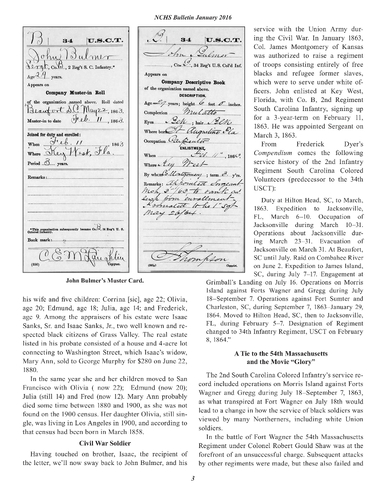 NCHS Bulletin January 2016
B 34 U.S.C.T.
John Bulmer
Co. B, 2 Reg't S. C. Infantry.*
Age 29 years.
Appears on
Company Muster-in Roll
of the organization named above. Roll dated
Muster-in to date Feb. 11, 186
Joined for duty and enrolled:
When Feb. 11, 186
Where Key West, Fla.
Period 3 years.
Remarks:
Book mark:
Copyist.
B 34 U.S.C.T.
John Bulmer
Co. B, 34 Reg't U.S. Col'd Inf.
Appears on
Company Descriptive Book
of the organization named above.
DESCRIPTION.
Age years; height 6 feet inches.
Complexion Mulatto
Eyes ; hair
Where born St. Augustine Fla
Occupation Carpenter
ENLISTMENT.
When 186
Where Key West
By whom Montgomery; term 3 y'rs.
Remarks: Appointed Sergeant
Thompson
Copyist.
John Bulmer's Muster Card.
his wife and five children: Corrina [sic], age 22; Olivia,
age 20; Edmund, age 18; Julia, age 14; and Frederick,
age 9. Among the appraisers of his estate were Isaac
Sanks, Sr. and Isaac Sanks, Jr., two well known and re-
spected black citizens of Grass Valley. The real estate
listed in his probate consisted of a house and 4-acre lot
connecting to Washington Street, which Isaac's widow,
Mary Ann, sold to George Murphy for $280 on June 22,
1880.
In the same year she and her children moved to San
Francisco with Olivia ( now 22); Edmund (now 20);
Julia (still 14) and Fred (now 12). Mary Ann probably
died some time between 1880 and 1900, as she was not
found on the 1900 census. Her daughter Olivia, still sin-
gle, was living in Los Angeles in 1900, and according to
that census had been born in March 1858.
Civil War Soldier
Having touched on brother, Isaac, the recipient of
the letter, we'll now sway back to John Bulmer, and his
service with the Union Army dur-
ing the Civil War. In January 1863,
Col. James Montgomery of Kansas
was authorized to raise a regiment
of troops consisting entirely of free
blacks and refugee former slaves,
which were to serve under white of-
ficers. John enlisted at Key West,
Florida, with Co. B, 2nd Regiment
South Carolina Infantry, signing up
for a 3-year-term on February 11,
1863. He was appointed Sergeant on
March 3, 1863.
From Frederick Dyer's
Compendium comes the following
service history of the 2nd Infantry
Regiment South Carolina Colored
Volunteers (predecessor to the 34th
USCT):
Duty at Hilton Head, SC, to March,
1863. Expedition to Jacksonville,
FL, March 6–10. Occupation of
Jacksonville during March 10–31.
Operations about Jacksonville dur-
ing March 23–31. Evacuation of
Jacksonville on March 31. At Beaufort,
SC until July. Raid on Combahee River
on June 2. Expedition to James Island,
SC, during July 7–17. Engagement at
Grimball's Landing on July 16. Operations on Morris
Island against Forts Wagner and Gregg during July
18–September 7. Operations against Fort Sumter and
Charleston, SC, during September 7, 1863–January 29,
1864. Moved to Hilton Head, SC, then to Jacksonville,
FL, during February 5–7. Designation of Regiment
changed to 34th Infantry Regiment, USCT on February
8, 1864."
A Tie to the 54th Massachusetts
and the Movie “Glory”
The 2nd South Carolina Colored Infantry's service re-
cord included operations on Morris Island against Forts
Wagner and Gregg during July 18–September 7, 1863,
as what transpired at Fort Wagner on July 18th would
lead to a change in how the service of black soldiers was
viewed by many Northerners, including white Union
soldiers.
In the battle of Fort Wagner the 54th Massachusetts
Regiment under Colonel Robert Gould Shaw was at the
forefront of an unsuccessful charge. Subsequent attacks
by other regiments were made, but these also failed and
3